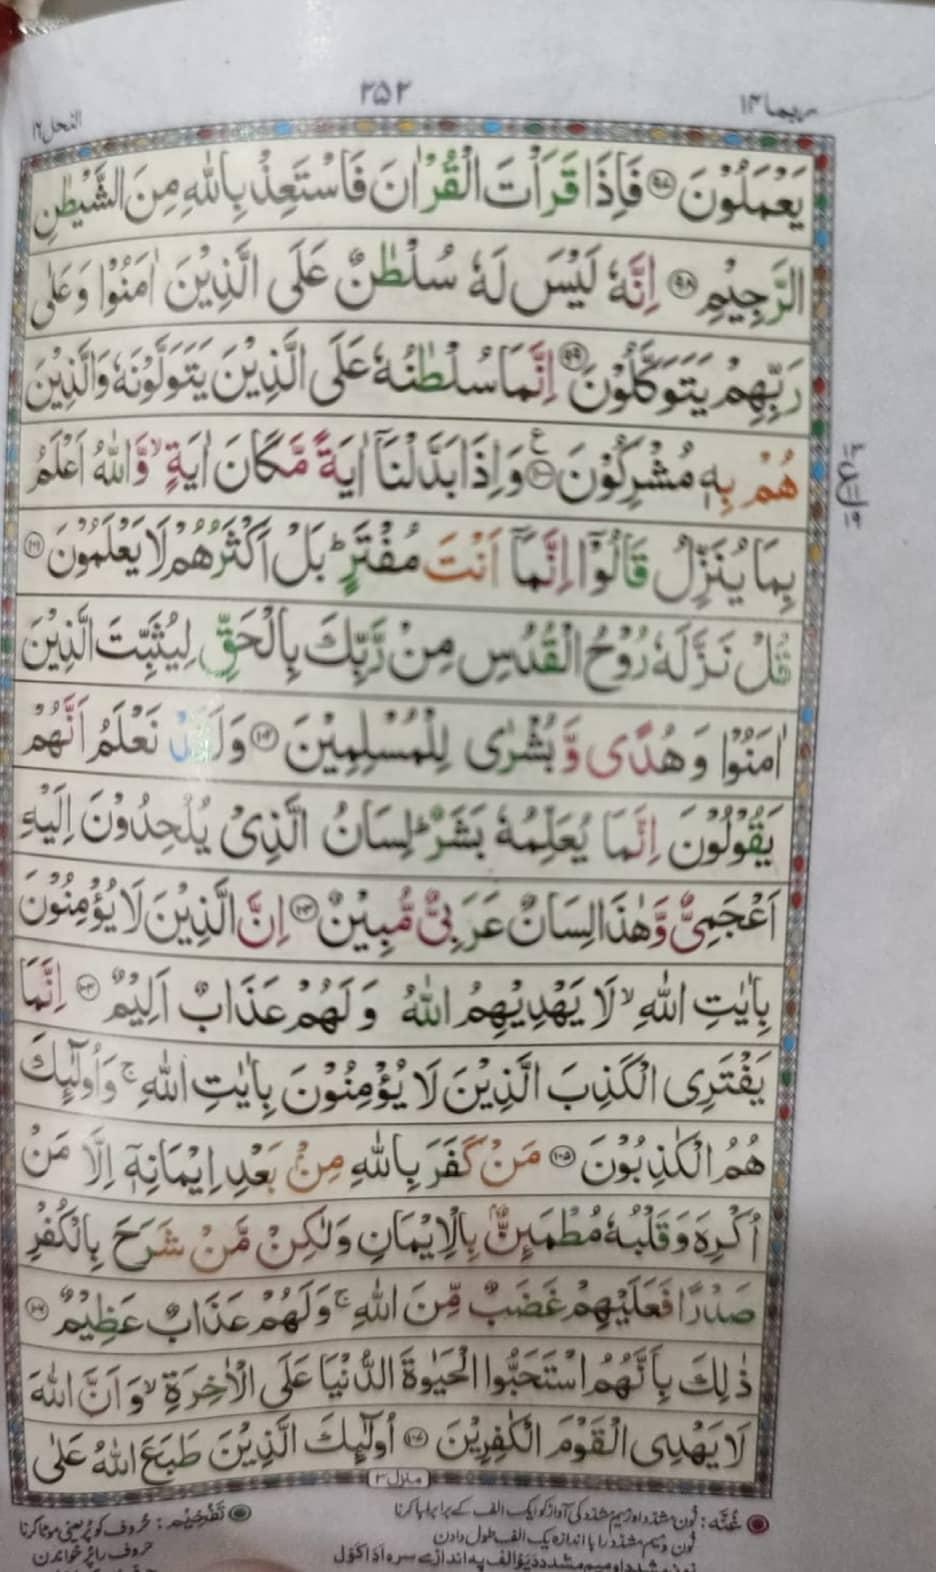 ربما ١٤
٢٥٢
النحل ١٦
يَعۡمَلُوۡنَ ﴿۹۷﴾ فَاِذَا قَرَاۡتَ الۡقُرۡاٰنَ فَاسۡتَعِذۡ بِاللّٰهِ مِنَ الشَّيۡطٰنِ
الرَّجِيۡمِ ﴿۹۸﴾ اِنَّهٗ لَيۡسَ لَهٗ سُلۡطٰنٌ عَلَى الَّذِيۡنَ اٰمَنُوۡا وَعَلٰى
رَبِّهِمۡ يَتَوَكَّلُوۡنَ ﴿۹۹﴾ اِنَّمَا سُلۡطٰنُهٗ عَلَى الَّذِيۡنَ يَتَوَلَّوۡنَهٗ وَالَّذِيۡنَ
هُمۡ بِهٖ مُشۡرِكُوۡنَ ﴿۱۰۰﴾ ع وَاِذَا بَدَّلۡنَاۤ اٰيَةً مَّكَانَ اٰيَةٍ ۙ وَّاللّٰهُ اَعۡلَمُ
١٣
ع
١٩
بِمَا يُنَزِّلُ قَالُوۡۤا اِنَّمَاۤ اَنۡتَ مُفۡتَرٍؕ بَلۡ اَكۡثَرُهُمۡ لَا يَعۡلَمُوۡنَ ﴿۱۰۱﴾
قُلۡ نَزَّلَهٗ رُوۡحُ الۡقُدُسِ مِنۡ رَّبِّكَ بِالۡحَـقِّ لِيُثَبِّتَ الَّذِيۡنَ
اٰمَنُوۡا وَهُدًى وَّبُشۡرٰى لِلۡمُسۡلِمِيۡنَ ﴿۱۰۲﴾ وَلَقَدۡ نَعۡلَمُ اَنَّهُمۡ
يَقُوۡلُوۡنَ اِنَّمَا يُعَلِّمُهٗ بَشَرٌؕ لِسَانُ الَّذِىۡ يُلۡحِدُوۡنَ اِلَيۡهِ
اَعۡجَمِىٌّ وَّهٰذَا لِسَانٌ عَرَبِىٌّ مُّبِيۡنٌ ﴿۱۰۳﴾ اِنَّ الَّذِيۡنَ لَا يُؤۡمِنُوۡنَ
بِاٰيٰتِ اللّٰهِ ۙ لَا يَهۡدِيۡهِمُ اللّٰهُ وَلَهُمۡ عَذَابٌ اَلِيۡمٌ ﴿۱۰۴﴾ اِنَّمَا
يَفۡتَرِى الۡكَذِبَ الَّذِيۡنَ لَا يُؤۡمِنُوۡنَ بِاٰيٰتِ اللّٰهِ ۚ وَاُولٰٓٮِٕكَ
هُمُ الۡكٰذِبُوۡنَ ﴿۱۰۵﴾ مَنۡ كَفَرَ بِاللّٰهِ مِنۡۢ بَعۡدِ اِيۡمَانِهٖۤ اِلَّا مَنۡ
اُكۡرِهَ وَقَلۡبُهٗ مُطۡمَٮِٕنٌّۢ بِالۡاِيۡمَانِ وَلٰكِنۡ مَّنۡ شَرَحَ بِالۡكُفۡرِ
صَدۡرًا فَعَلَيۡهِمۡ غَضَبٌ مِّنَ اللّٰهِ ۚ وَلَهُمۡ عَذَابٌ عَظِيۡمٌ ﴿۱۰۶﴾
ذٰلِكَ بِاَنَّهُمُ اسۡتَحَبُّوا الۡحَيٰوةَ الدُّنۡيَا عَلَى الۡاٰخِرَةِ ۙ وَاَنَّ اللّٰهَ
لَا يَهۡدِى الۡقَوۡمَ الۡكٰفِرِيۡنَ ﴿۱۰۷﴾ اُولٰٓٮِٕكَ الَّذِيۡنَ طَبَعَ اللّٰهُ عَلٰى
منزل ٣
غُنَّه: نون مشدد اور میم مشدد کی آواز کو ایک الف کے برابر لمبا کرنا
نون و میم مشدد را با اندازه یک الف طول دادن
تَفْخِیْم: حروف کو پُر یعنی موٹا کرنا
حروف را پُر خواندن